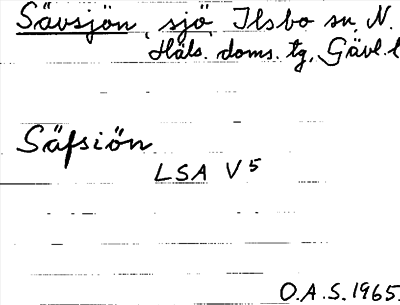 Sävsjön, sjö, Ilsbo sn, N.
Häls. doms. tg, Gävl. l
Säfsiön
LSA V 5
O.A.S. 1965.